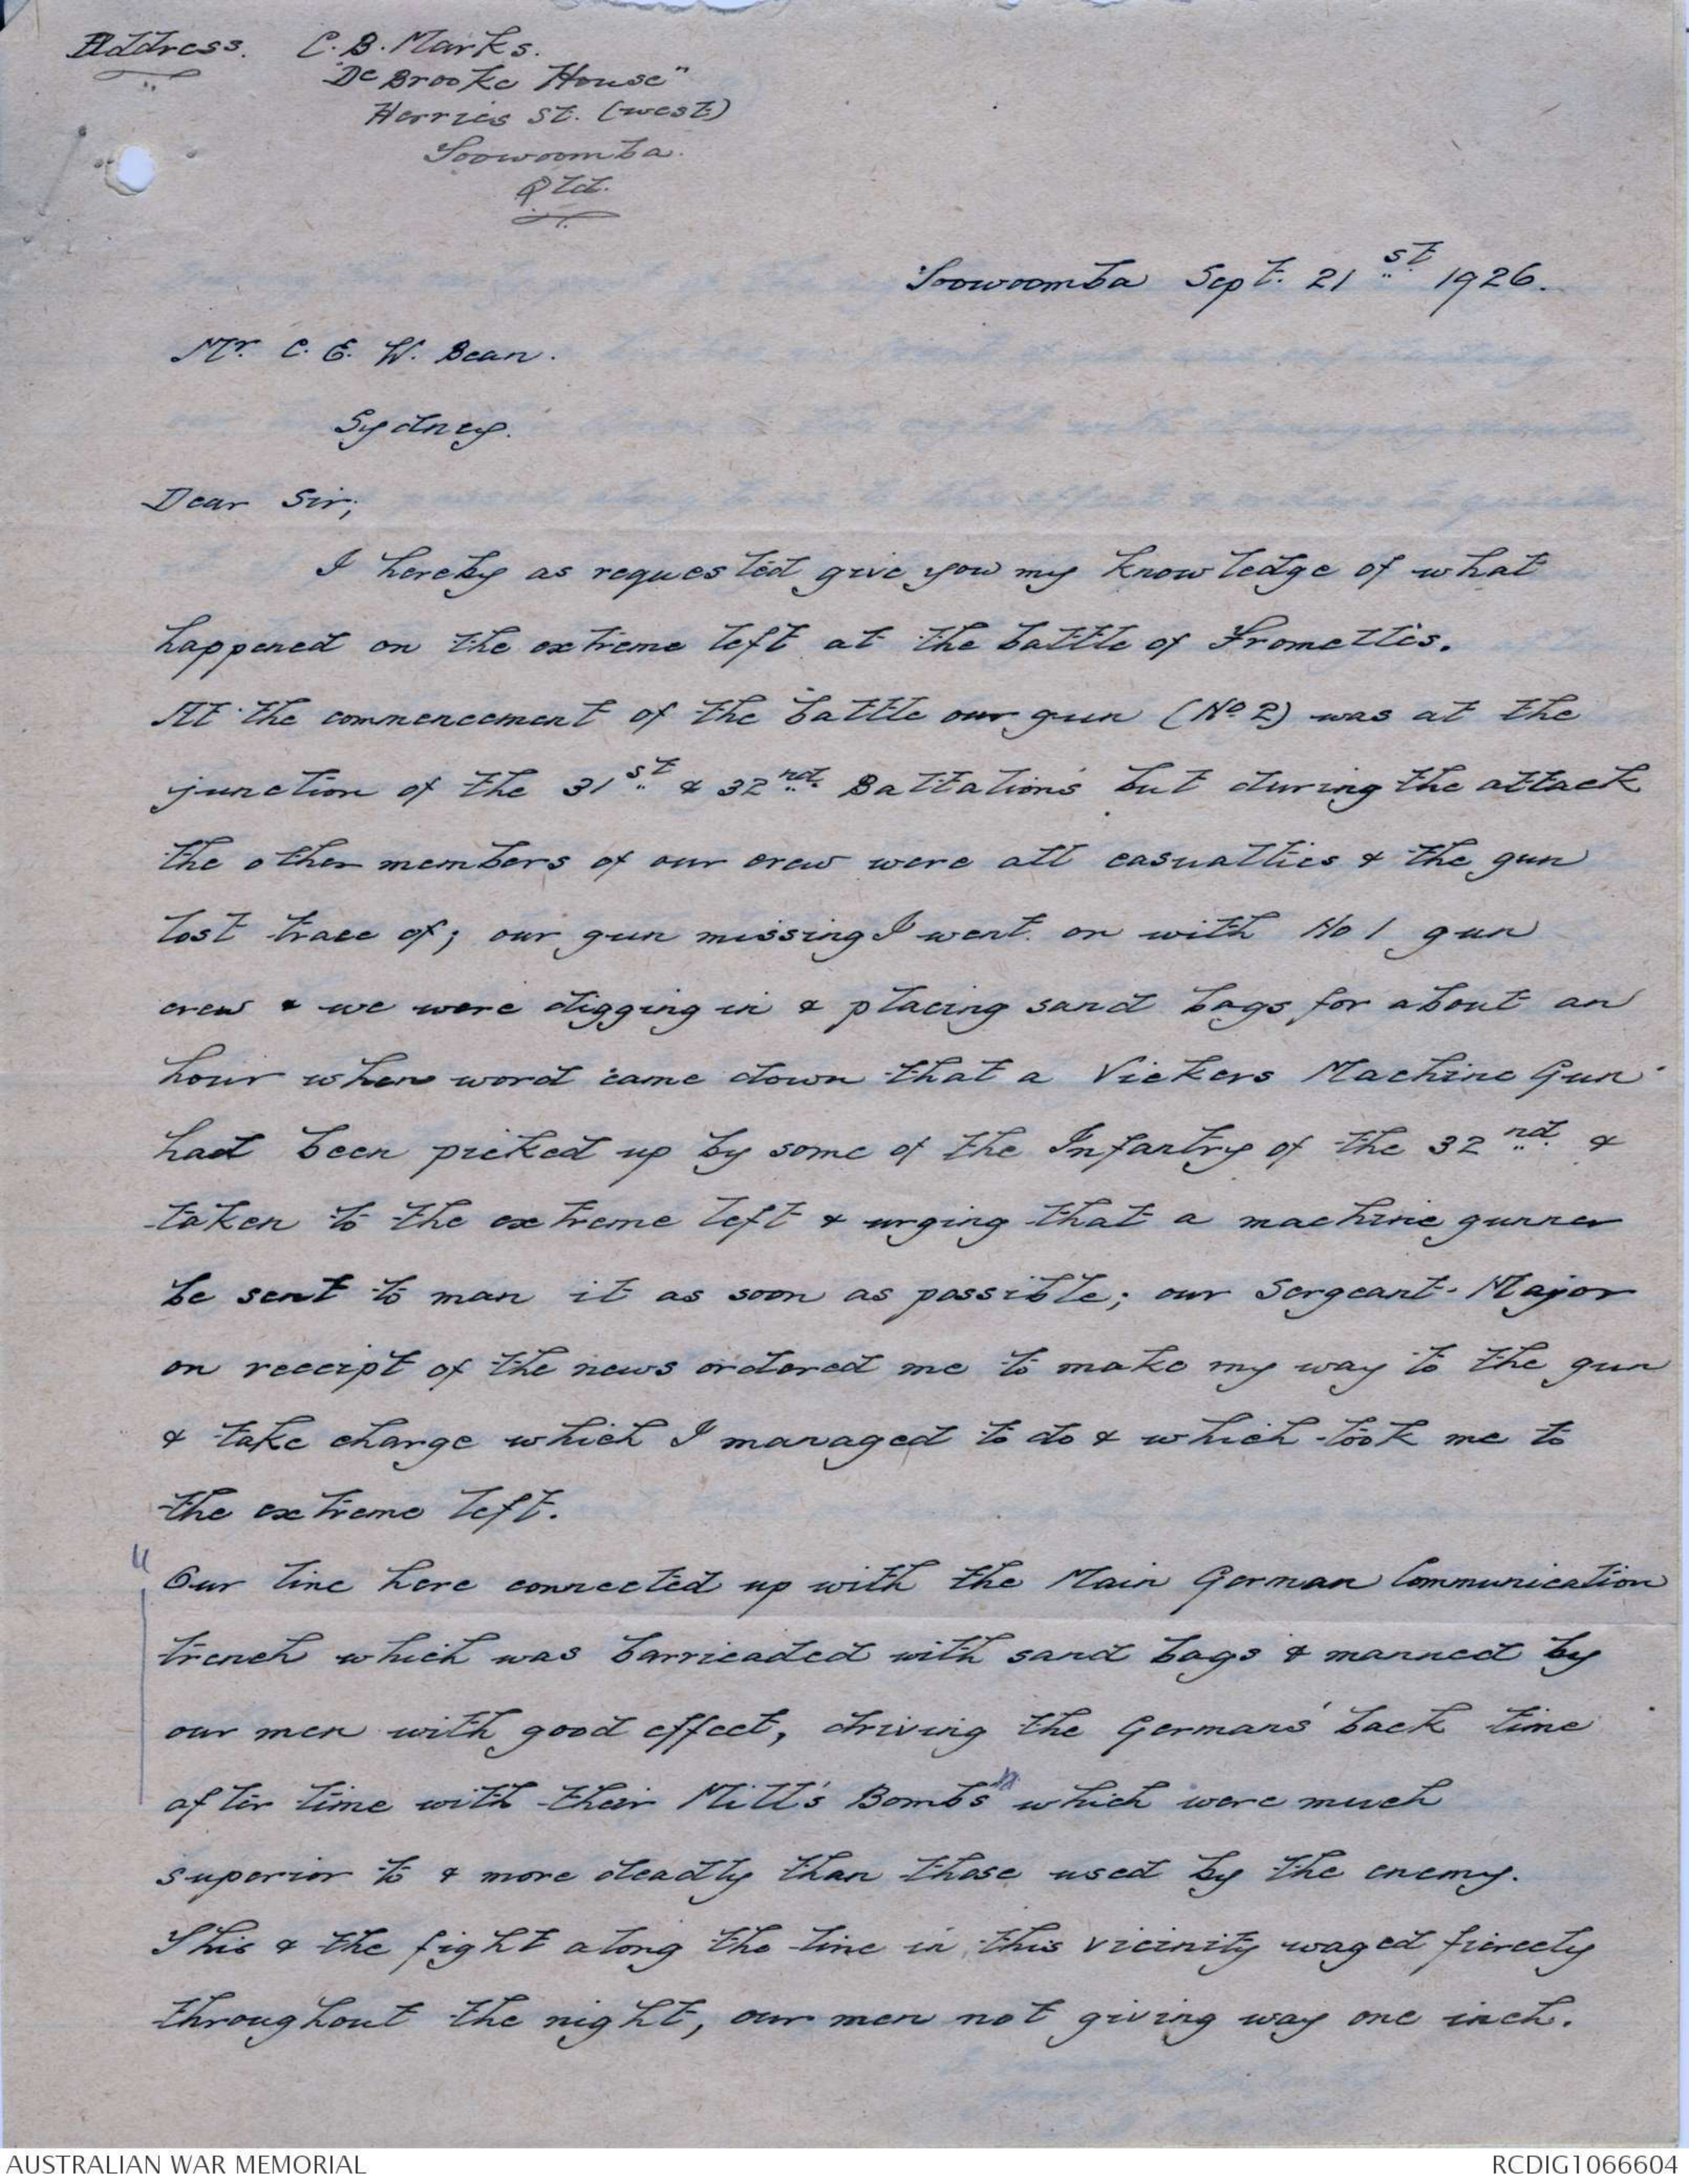 Address. C.B. Marks.
"De Brooke House"
Herries St. (west)
Toowoomba.
Qld.
Toowoomba Sept. 21st 1926.
Mr. C. E. W. Bean.
Sydney.
Dear Sir;
I hereby as requested give you my knowledge of what
happened on the extreme left at the battle of Fromelles.
At the commencement of the battle our gun (No 2) was at the
junction of the 31st & 32nd Battalions but during the attack
the other members of our crew were all casualties & the gun
lost trace of; our gun missing I went on with No 1 gun
crew & we were digging in & placing sand bags for about an
hour when word came down that a Vickers Machine Gun
had been picked up by some of the Infantry of the 32nd &
taken to the extreme left & urging that a machine gunner
be sent to man it as soon as possible; our Sergeant-Major
on receipt of the news ordered me to make my way to the gun
& take charge which I managed to do & which took me to
the extreme left.
"Our line here connected up with the Main German Communication
trench which was barricaded with sand bags & manned by
our men with good effect, driving the Germans' back time
after time with their Mill's Bombs" which were much
superior to & more deadly than those used by the enemy.
This & the fight along the line in this vicinity waged fiercely
throughout the night, our men not giving way one inch.
AUSTRALIAN WAR MEMORIAL
RCDIG1066604